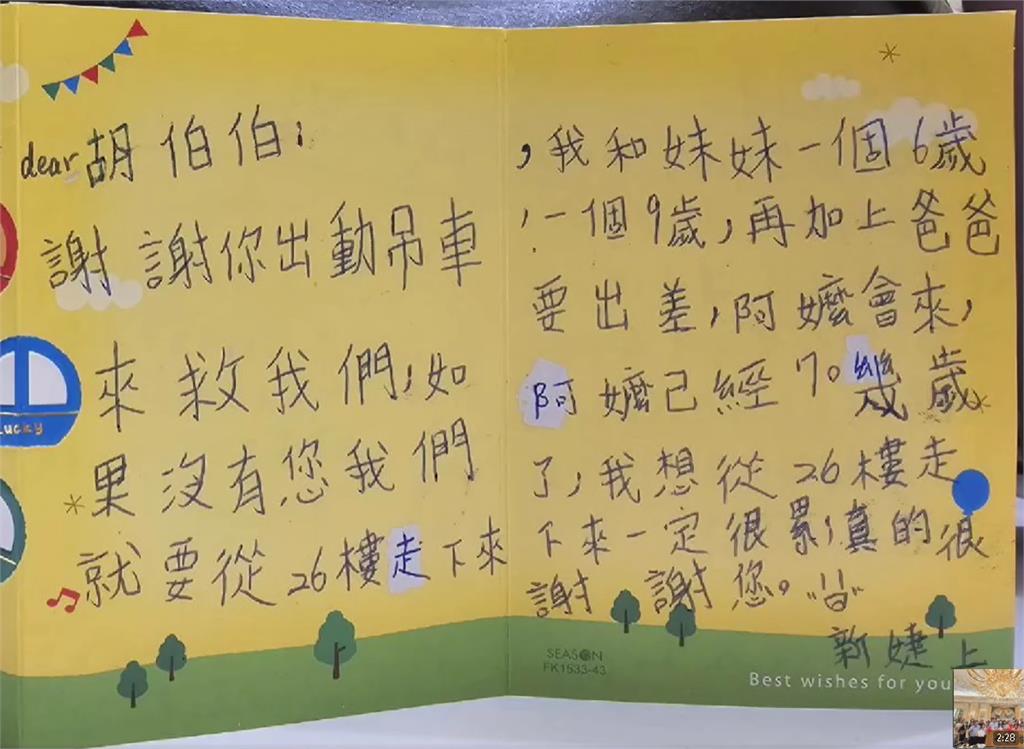 dear 胡伯伯：
謝謝你出動吊車
來救我們，如
果沒有您我們
就要從26樓走下來
，我和妹妹一個6歲
，一個9歲，再加上爸爸
要出差，阿嬤會來，
阿嬤已經70幾歲
了，我想從26樓走
下來一定很累，真的很
謝謝您。
新婕上
Lucky
SEASON
FK1533-43
Best wishes for you
2:28